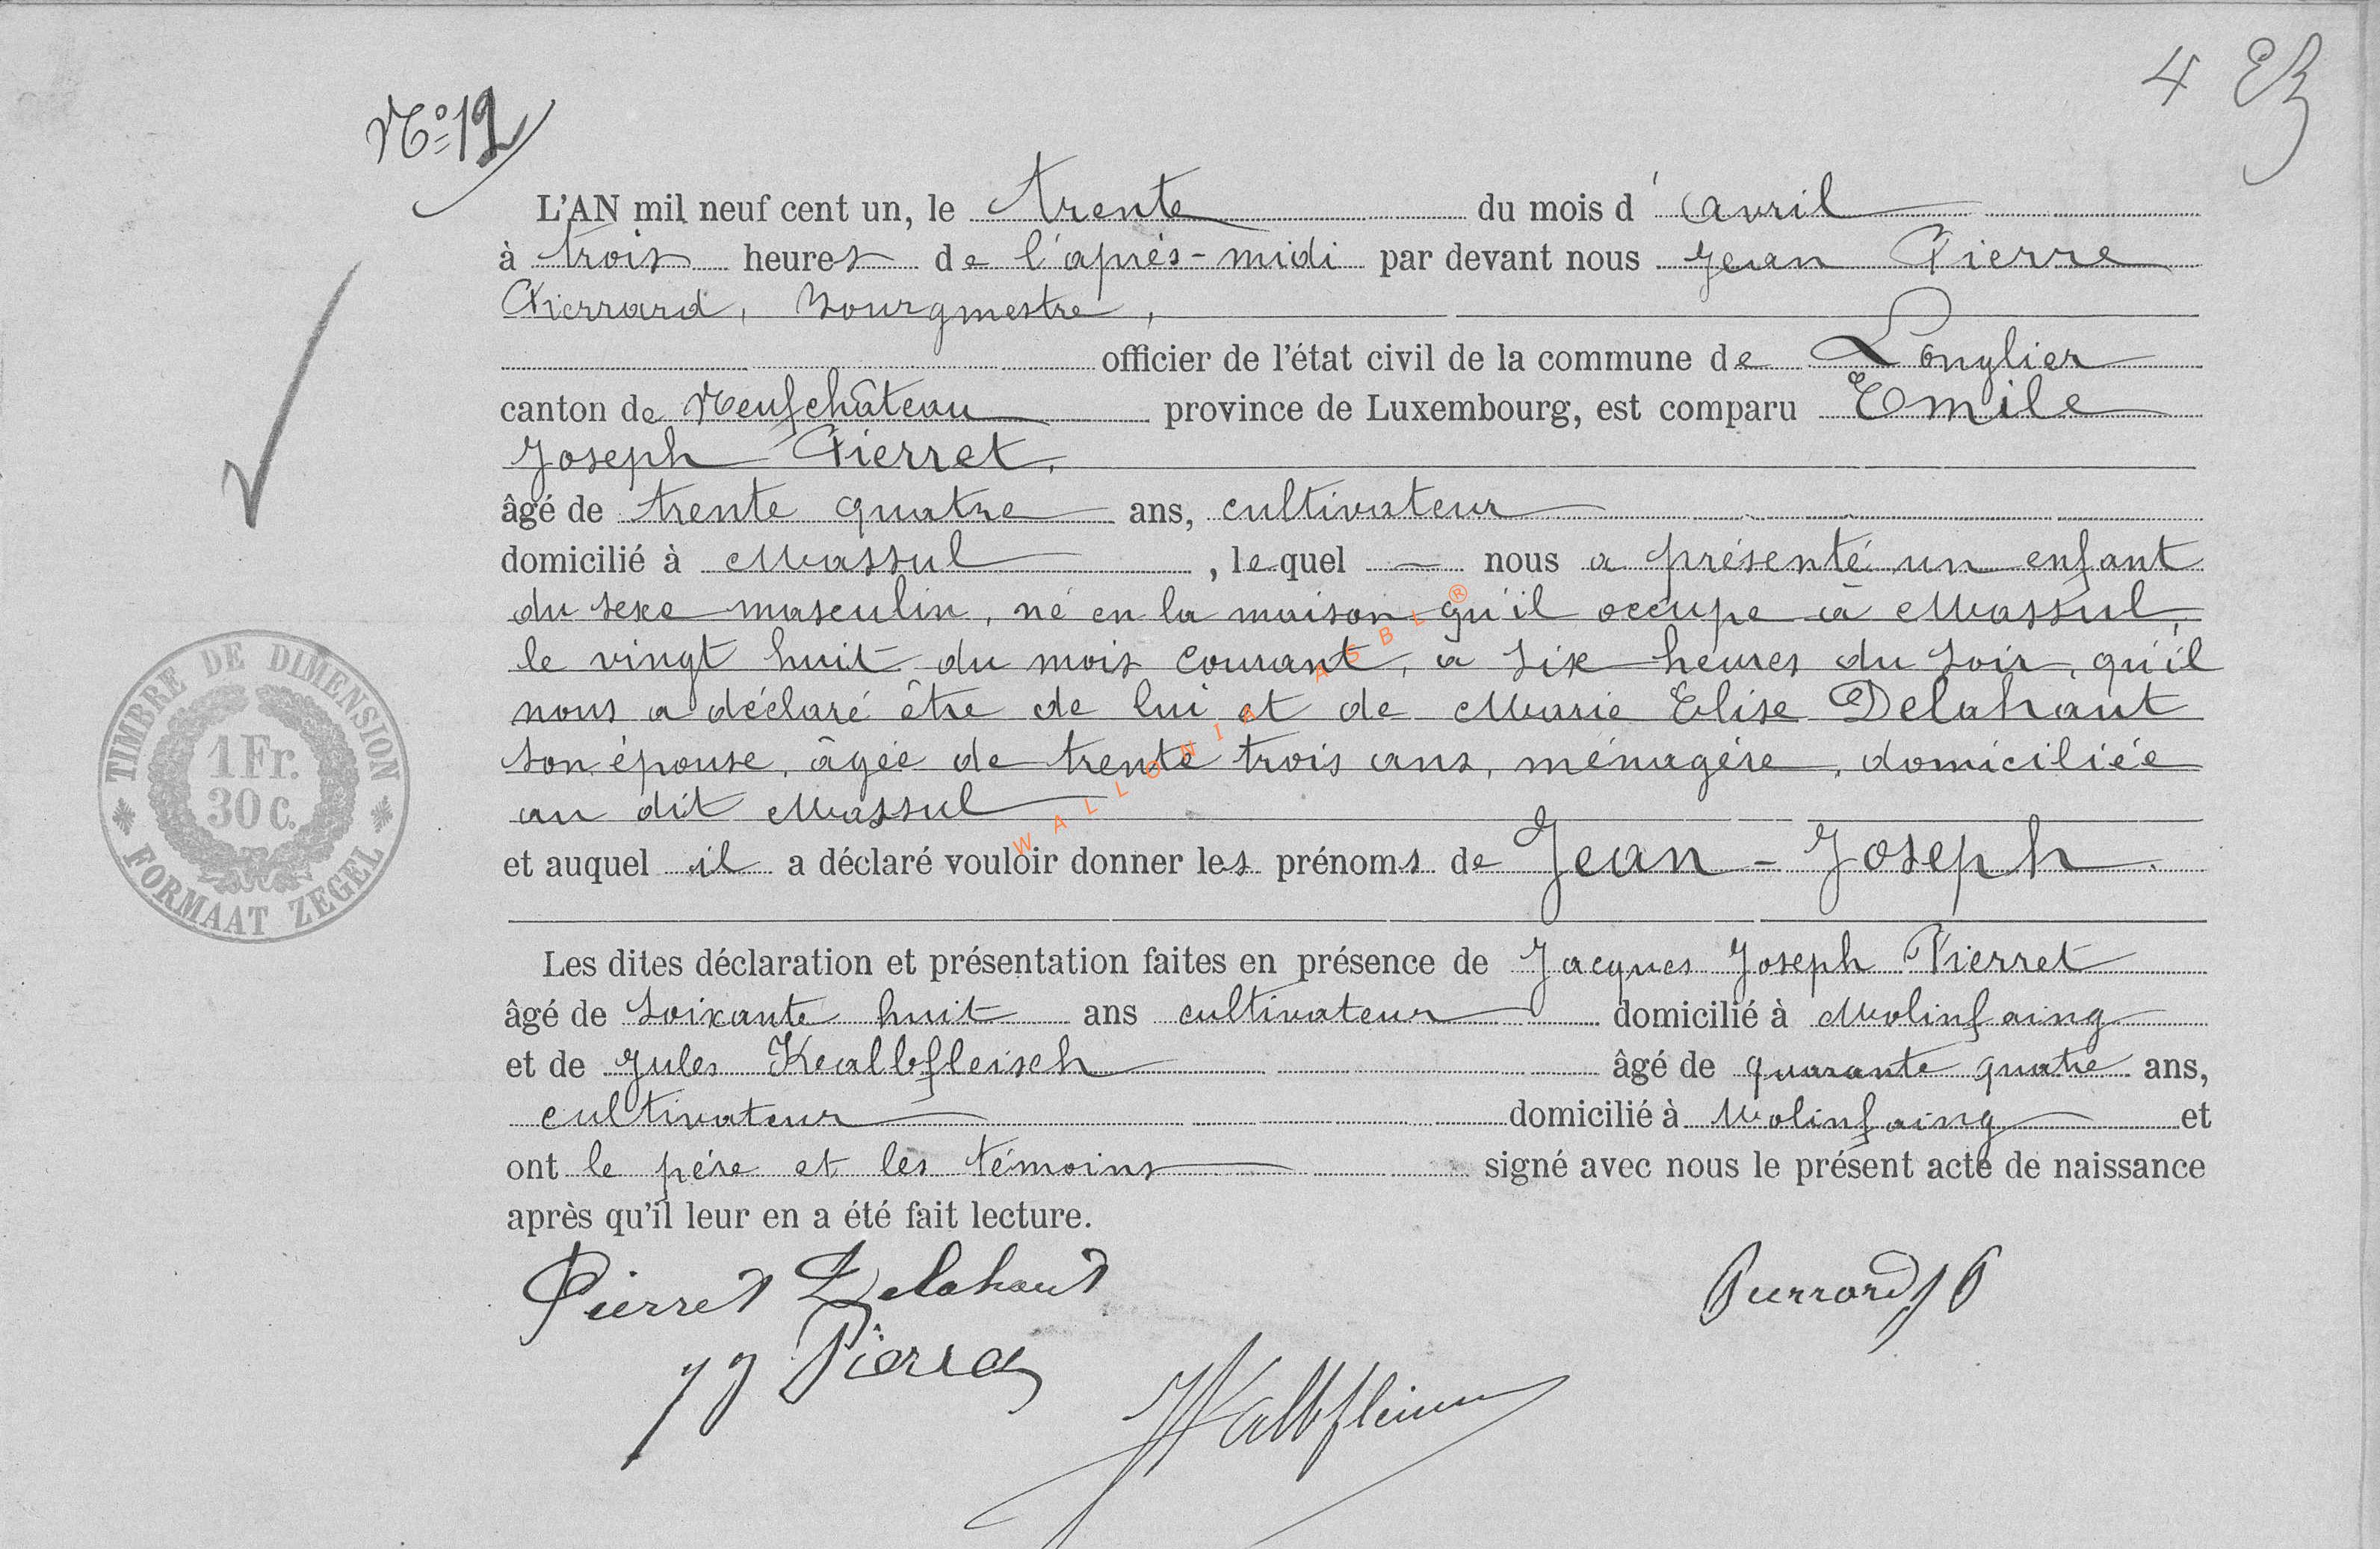 4
N° 12
L'AN mil neuf cent un, le trente du mois d'avril
à trois heures de l'après-midi par devant nous Jean Pierre
Pierrard, Bourgmestre,
officier de l'état civil de la commune de Longlier
canton de Neufchâteau province de Luxembourg, est comparu Emile
Joseph Pierret,
âgé de trente quatre ans, cultivateur
domicilié à Massul, lequel — nous a présenté un enfant
du sexe masculin, né en la maison qu'il occupe à Massul,
le vingt huit du mois courant, à six heures du soir, qu'il
nous a déclaré être de lui et de Marie Elise Delahaut
son épouse, âgée de trente trois ans, ménagère, domiciliée
au dit Massul
et auquel il a déclaré vouloir donner les prénoms de Jean-Joseph.
Les dites déclaration et présentation faites en présence de Jacques Joseph Pierret
âgé de soixante huit ans cultivateur domicilié à Molinfaing
et de Jules Kalbfleisch âgé de quarante quatre ans,
cultivateur domicilié à Molinfaing et
ont le père et les témoins signé avec nous le présent acte de naissance
après qu'il leur en a été fait lecture.
Pierret Delahaut
Pierrard J P
J J Pierret
TIMBRE DE DIMENSION
1 Fr.
30 c.
FORMAAT ZEGEL
WALLONIA ASBL ®